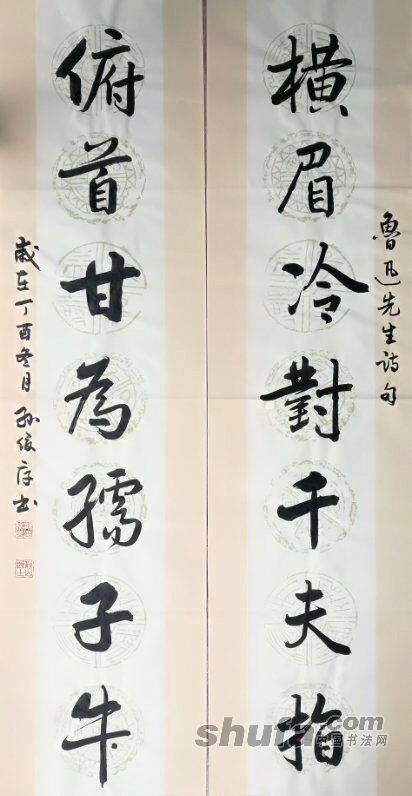 魯迅先生詩句
橫眉冷對千夫指
俯首甘為孺子牛
歲在丁酉冬月 孙俊存书
shufa.com
中国书法网